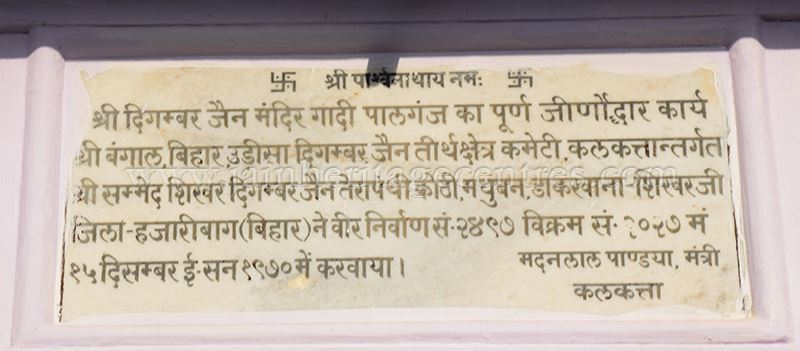 卐 श्री पार्श्वनाथाय नमः 卐
श्री दिगम्बर जैन मंदिर गादी पालगंज का पूर्ण जीर्णोद्धार कार्य
श्री बंगाल, बिहार, उडीसा दिगम्बर जैन तीर्थक्षेत्र कमेटी, कलकत्तान्तर्गत
श्री सम्मेद शिखर दिगम्बर जैन तेरापंथी कोठी, मधुबन, डाकखाना-शिखरजी
जिला-हजारीबाग (बिहार) ने वीर निर्वाण सं॰ २४९७ विक्रम सं॰ २०२७ मं
१५ दिसम्बर ई॰ सन १९७० में करवाया।
मदनलाल पाण्डया, मंत्री
कलकत्ता